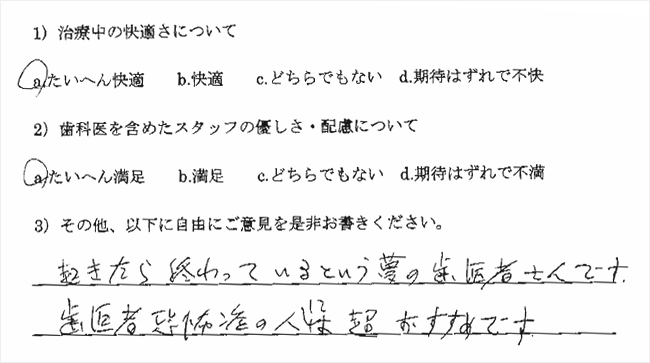 1) 治療中の快適さについて
a.たいへん快適 b.快適 c.どちらでもない d.期待はずれで不快
2) 歯科医を含めたスタッフの優しさ・配慮について
a.たいへん満足 b.満足 c.どちらでもない d.期待はずれで不満
3) その他、以下に自由にご意見を是非お書きください。
起きたら終わっているという夢の歯医者さんです。
歯医者恐怖症の人には超おすすめです